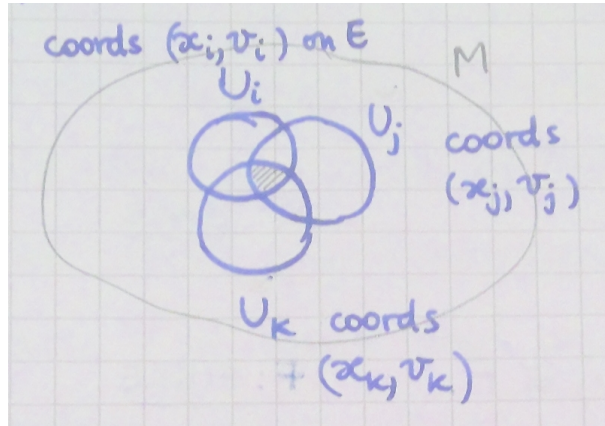 coords (x_i, v_i) on E
M
U_i
U_j
coords
(x_j, v_j)
U_k coords
(x_k, v_k)